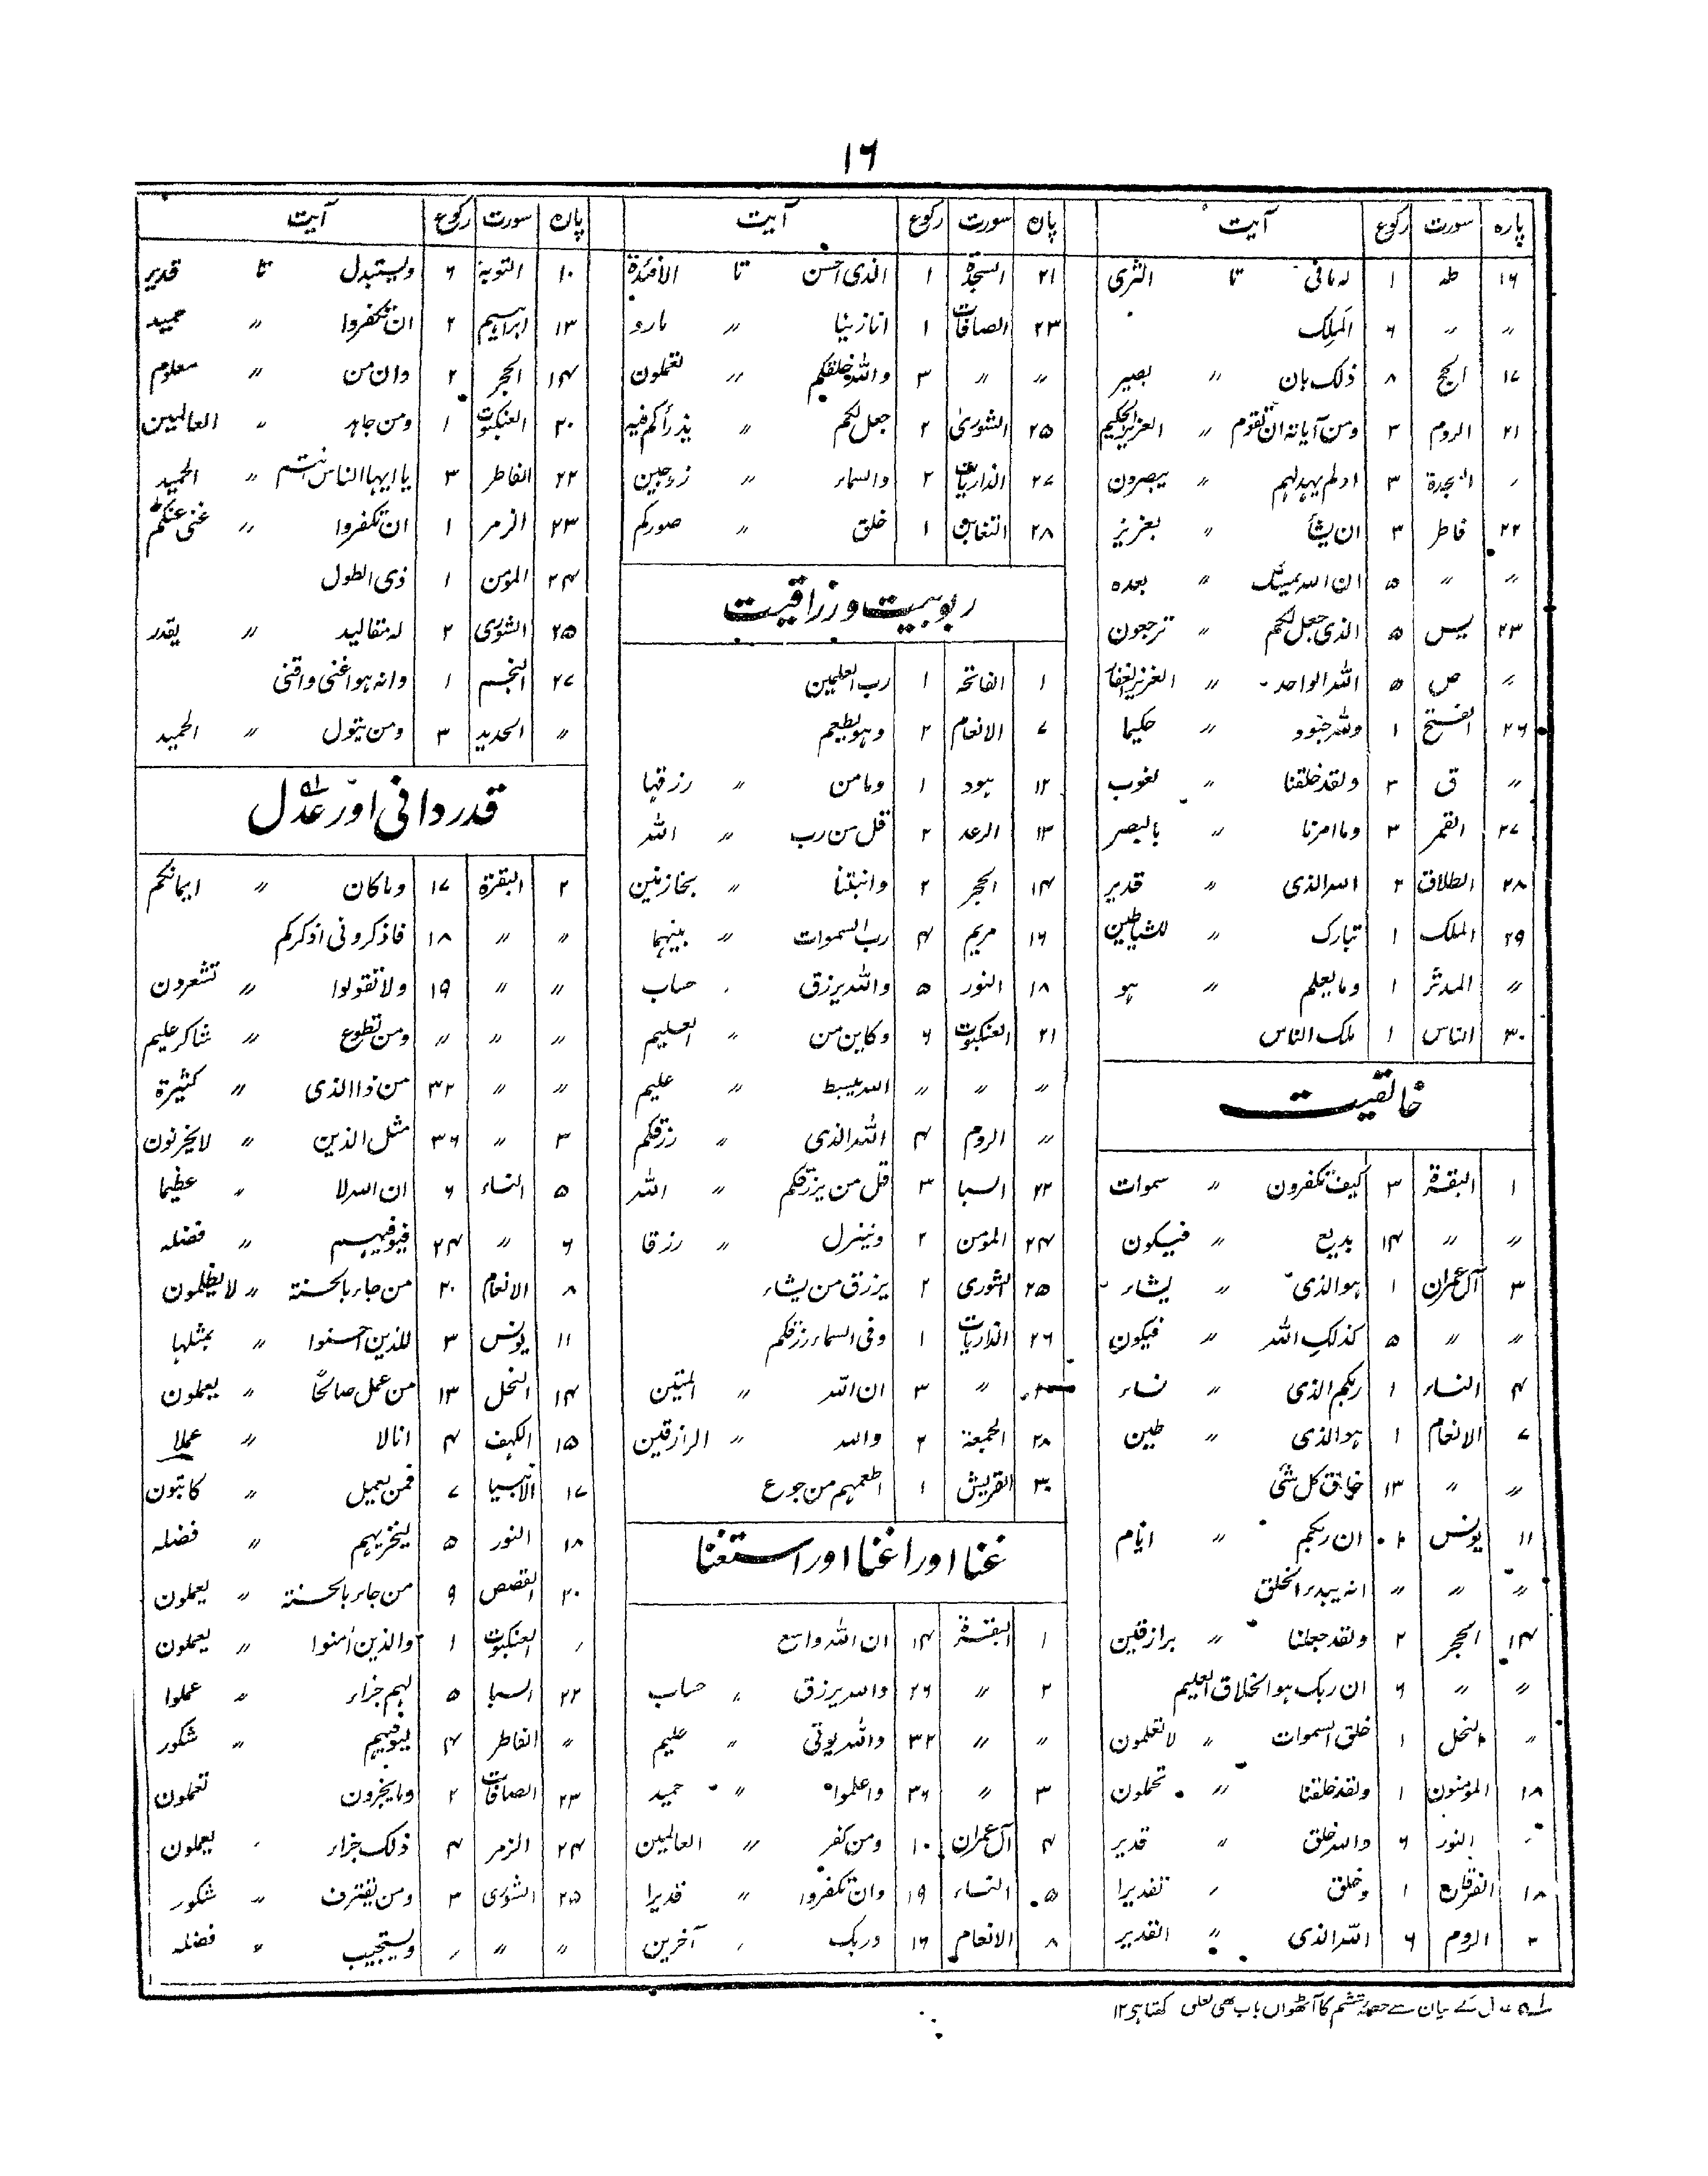 ۱۶
پارہ سورت رکوع آیت
۱۶ طہ ۱ لہ مافی تا الثری
〃 〃 ۶ الملک
۱۷ الحج ۸ ذلک بان 〃 بصیر
۲۱ الروم ۳ ومن آیاتہ ان تقوم 〃 العزیز الحکیم
〃 السجدۃ ۳ اولم یہد لہم 〃 یبصرون
۲۲ فاطر ۳ ان یشأ 〃 بعزیز
〃 〃 ۵ ان اللہ یمسک 〃 بعدہ
۲۳ یٰس ۵ الذی جعل لکم 〃 ترجعون
〃 ص ۵ اللہ الواحد 〃 العزیز الغفار
۲۶ الفتح ۱ وللہ جنود 〃 حکیما
〃 ق ۳ ولقد خلقنا 〃 لغوب
۲۷ القمر ۳ وما امرنا 〃 بالبصر
۲۸ الطلاق ۲ اللہ الذی 〃 قدیر
۲۹ الملک ۱ تبارک 〃 للشیاطین
〃 المدثر ۱ وما یعلم 〃 ہو
۳۰ الناس ۱ ملک الناس
خالقیت
۱ البقرۃ ۳ کیف تکفرون 〃 سموات
〃 〃 ۱۴ بدیع 〃 فیکون
۳ آل عمران ۱ ہوالذی 〃 یشاء
〃 〃 ۵ کذلک اللہ 〃 فیکون
۴ النساء ۱ ربکم الذی 〃 نساء
۷ الانعام ۱ ہوالذی 〃 طین
〃 〃 ۱۳ خالق کل شئی
۱۱ یونس ۱ ان ربکم 〃 ایام
〃 〃 〃 انہ یبدء الخلق
۱۴ الحجر ۲ ولقد جعلنا 〃 برازقین
〃 〃 ۶ ان ربک ہوالخلاق العلیم
〃 النحل ۱ خلق السموات 〃 لاتعلمون
۱۸ المؤمنون ۱ ولقد خلقنا 〃 تحملون
〃 النور ۶ واللہ خلق 〃 قدیر
۱۸ الفرقان ۱ وخلق 〃 تقدیرا
الروم ۶ اللہ الذی 〃 القدیر
پارہ سورت رکوع آیت
۲۱ السجدۃ ۱ الذی احسن تا الافئدۃ
۲۳ الصافات ۱ انا زینا 〃 مارد
〃 〃 ۳ واللہ خلقکم 〃 تعملون
۲۵ الشوریٰ ۲ جعل لکم 〃 یذرأکم فیہ
۲۷ الذاریات ۲ والسماء 〃 زوجین
۲۸ التغابن ۱ خلق 〃 صورکم
ربوبیت و رزاقیت
۱ الفاتحہ ۱ رب العلمین
۷ الانعام ۲ وہو یطعم
۱۲ ہود ۱ وما من 〃 رزقہا
۱۳ الرعد ۲ قل من رب 〃 اللہ
۱۴ الحجر ۲ وانبتنا 〃 بخازنین
۱۶ مریم ۴ رب السموات 〃 بینہما
۱۸ النور ۵ واللہ یرزق 〃 حساب
۲۱ العنکبوت ۶ وکاین من 〃 العلیم
〃 〃 〃 اللہ یبسط 〃 علیم
〃 الروم ۴ اللہ الذی 〃 رزقکم
۲۲ السبا ۳ قل من یرزقکم 〃 اللہ
۲۴ المومن ۲ وینزل 〃 رزقا
۲۵ الشوری ۲ یرزق من یشاء
۲۶ الذاریات ۱ وفی السماء رزقکم
〃 ۳ ان اللہ 〃 المتین
۲۸ الجمعۃ ۲ واللہ 〃 الرازقین
۳۰ القریش ۱ اطعمہم من جوع
غنا اور اغنا اور استغنا
۱ البقرۃ ۱۴ ان اللہ واسع
۲ 〃 ۲۶ واللہ یرزق 〃 حساب
〃 〃 ۳۲ واللہ یوتی 〃 علیم
۳ 〃 ۳۶ واعلموا 〃 حمید
۴ آل عمران ۱۰ ومن کفر 〃 العالمین
۵ النساء ۱۹ وان تکفروا 〃 قدیرا
۸ الانعام ۱۶ وربک 〃 آخرین
پارہ سورت رکوع آیت
۱۰ التوبۃ ۶ ویستبدل تا قدیر
۱۳ ابراہیم ۲ ان تکفروا 〃 حمید
۱۴ الحجر ۲ وان من 〃 معلوم
۲۰ العنکبوت ۱ ومن جاہد 〃 العالمین
۲۲ الفاطر ۳ یا ایہا الناس انتم 〃 الحمید
۲۳ الزمر ۱ ان تکفروا 〃 غنی عنکم
۲۴ المؤمن ۱ ذی الطول
۲۵ الشوریٰ ۲ لہ مقالید 〃 یقدر
۲۷ النجم ۱ وانہ ہو اغنی واقنی
〃 الحدید ۳ ومن یتول 〃 الحمید
قدردانی اور عدل
۲ البقرۃ ۱۷ وماکان 〃 ایمانکم
〃 〃 ۱۸ فاذکرونی اذکرکم
〃 〃 ۱۹ ولا تقولوا 〃 تشعرون
〃 〃 〃 ومن تطوع 〃 شاکر علیم
〃 〃 ۳۲ من ذا الذی 〃 کثیرۃ
۳ 〃 ۳۶ مثل الذین 〃 لایحزنون
۵ النساء ۶ ان اللہ لا 〃 عظیما
۶ 〃 ۲۴ فیوفیہم 〃 فضلہ
۸ الانعام ۲۰ من جاء بالحسنۃ 〃 لایظلمون
۱۱ یونس ۳ للذین احسنوا 〃 بمثلہا
۱۴ النحل ۱۳ من عمل صالحًا 〃 یعملون
۱۵ الکہف ۴ انا لا 〃 عملا
۱۷ الانبیا ۷ فمن یعمل 〃 کاتبون
۱۸ النور ۵ لیجزیہم 〃 فضلہ
۲۰ القصص ۹ من جاء بالحسنۃ 〃 یعملون
〃 العنکبوت ۱ والذین اٰمنوا 〃 یعملون
۲۲ السبا ۵ لہم جزاء 〃 عملوا
〃 الفاطر ۴ لیوفیہم 〃 شکور
۲۳ الصافات ۲ وما یجزون تعملون
۲۴ الزمر ۴ ذلک جزاء 〃 یعملون
۲۵ الشوریٰ ۳ ومن یقترف 〃 شکور
〃 〃 〃 ویستجیب 〃 فضلہ
عدل کے بیان سے حصہ ششم کا آٹھواں باب بھی تعلق رکھتا ہے ۱۲